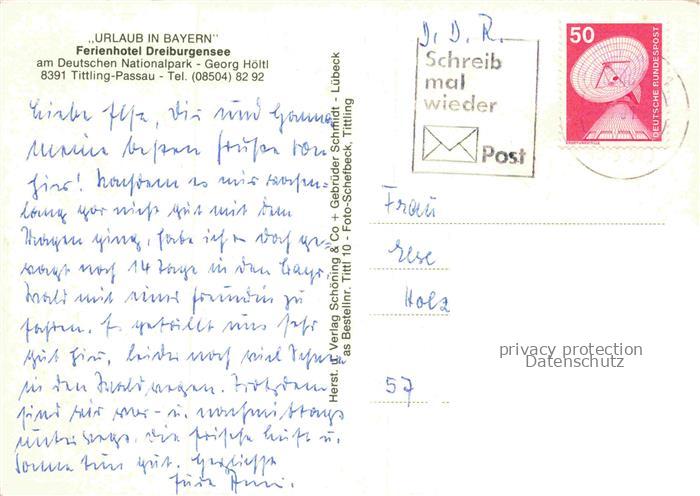 „URLAUB IN BAYERN"
Ferienhotel Dreiburgensee
am Deutschen Nationalpark - Georg Höltl
8391 Tittling-Passau - Tel. (08504) 82 92
Liebe Else, Dir und Hanna
meine besten Grüße von
hier! Nachdem es mir wochen-
lang gar nicht gut mit dem
Magen ging, habe ich es doch ge-
wagt noch 14 Tage in den bayr.
Wald mit einer Freundin zu
fahren. Es gefällt uns sehr
gut hier, leider noch viel Schnee
in den Waldwegen. Trotzdem
sind wir vor- u. nachmittags
unterwegs. Die frische Luft u.
Sonne tun gut. Herzlichst
Eure Anni.
Herst. u. Verlag Schöning & Co + Gebrüder Schmidt - Lübeck
as Bestellnr. Tittl 10 - Foto-Schefbeck, Tittling
D. D. R.
Schreib
mal
wieder
Post
50
DEUTSCHE BUNDESPOST
Frau
Else
Holz
57
privacy protection
Datenschutz